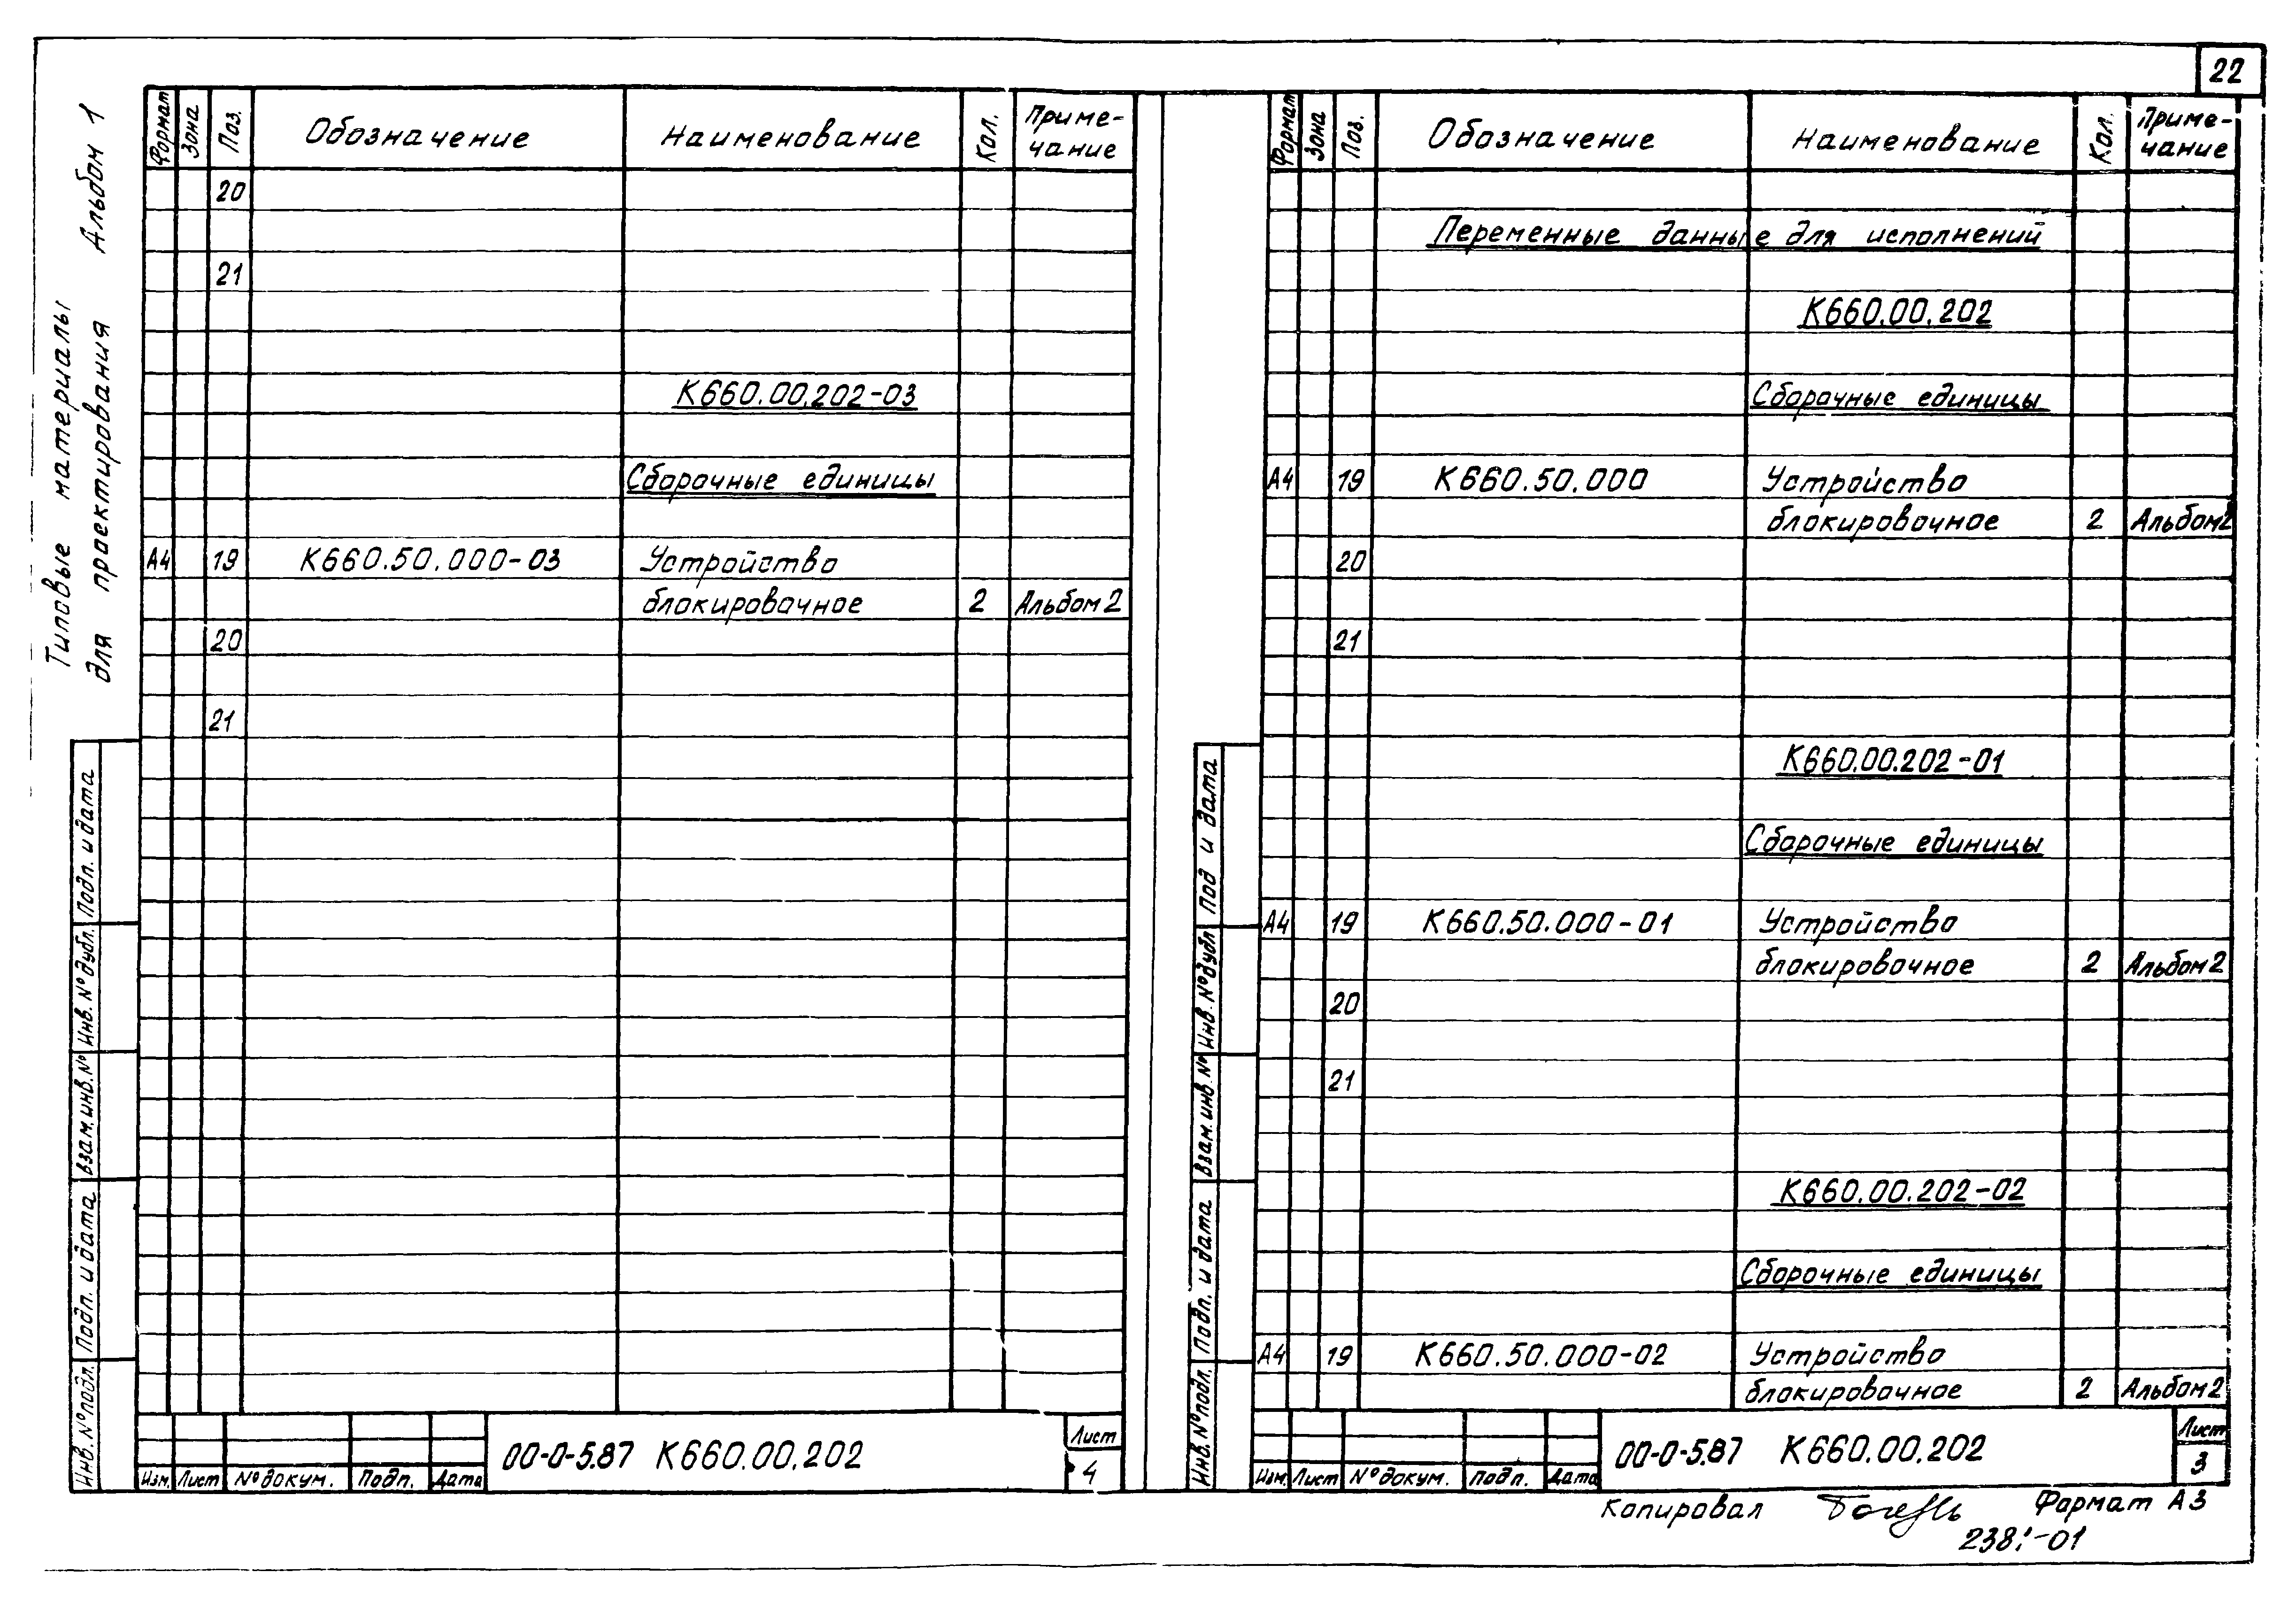 22
Типовые материалы
для проектирования Альбом 1
Формат Зона Поз. Обозначение Наименование Кол. Приме-
чание
20
21
К660.00.202-03
Сборочные единицы
А4 19 К660.50.000-03 Устройство
блокировочное 2 Альбом 2
20
21
Инв. № подл. Подп. и дата Взам. инв. № Инв. № дубл. Подп. и дата
Изм. Лист № докум. Подп. Дата
00-0-5.87 К660.00.202
Лист
4
Формат Зона Поз. Обозначение Наименование Кол. Приме-
чание
Переменные данные для исполнений
К660.00.202
Сборочные единицы
А4 19 К660.50.000 Устройство
блокировочное 2 Альбом 2
20
21
К660.00.202-01
Сборочные единицы
А4 19 К660.50.000-01 Устройство
блокировочное 2 Альбом 2
20
21
К660.00.202-02
Сборочные единицы
А4 19 К660.50.000-02 Устройство
блокировочное 2 Альбом 2
Инв. № подл. Подп. и дата Взам. инв. № Инв. № дубл Под и дата
Изм. Лист № докум. Подп. Дата
00-0-5.87 К660.00.202
Лист
3
Копировал Формат А3